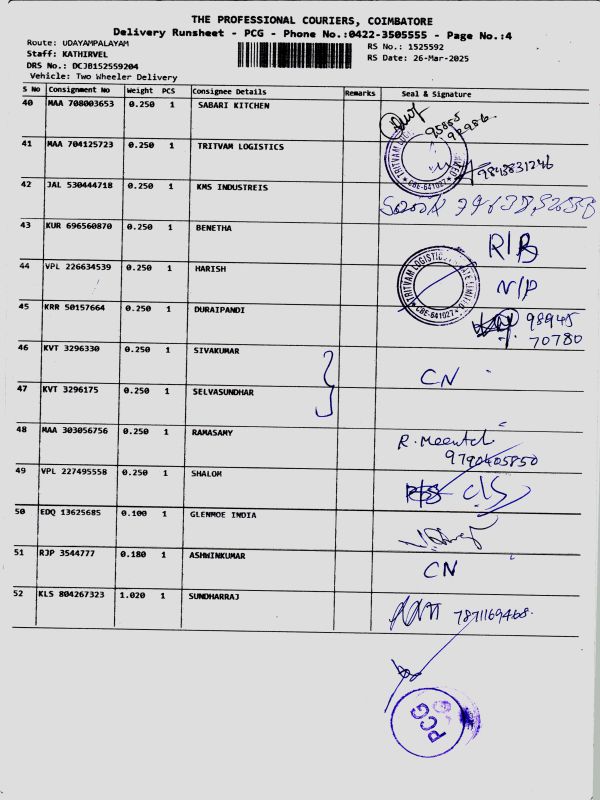 THE PROFESSIONAL COURIERS, COIMBATORE
Delivery Runsheet - PCG - Phone No.:0422-3505555 - Page No.:4
Route: UDAYAMPALAYAM
RS No.: 1525592
Staff: KATHIRVEL
RS Date: 26-Mar-2025
DRS No.: DCJB152559204
Vehicle: Two Wheeler Delivery
S No Consignment No Weight PCS Consignee Details Remarks Seal & Signature
40 MAA 708003653 0.250 1 SABARI KITCHEN
41 MAA 704125723 0.250 1 TRITVAM LOGISTICS
9843831246
42 JAL 530444718 0.250 1 KMS INDUSTREIS
43 KUR 696560870 0.250 1 BENETHA
R/B
44 VPL 226634539 0.250 1 HARISH
N/P
45 KRR 50157664 0.250 1 DURAIPANDI
98945
70780
46 KVT 3296330 0.250 1 SIVAKUMAR
CN
47 KVT 3296175 0.250 1 SELVASUNDHAR
48 MAA 303056756 0.250 1 RAMASAMY
9790405850
49 VPL 227495558 0.250 1 SHALOM
C/S
50 EDQ 13625685 0.100 1 GLENMOE INDIA
51 RJP 3544777 0.180 1 ASHWINKUMAR
CN
52 KLS 804267323 1.020 1 SUNDHARRAJ
7871169468.
PCG